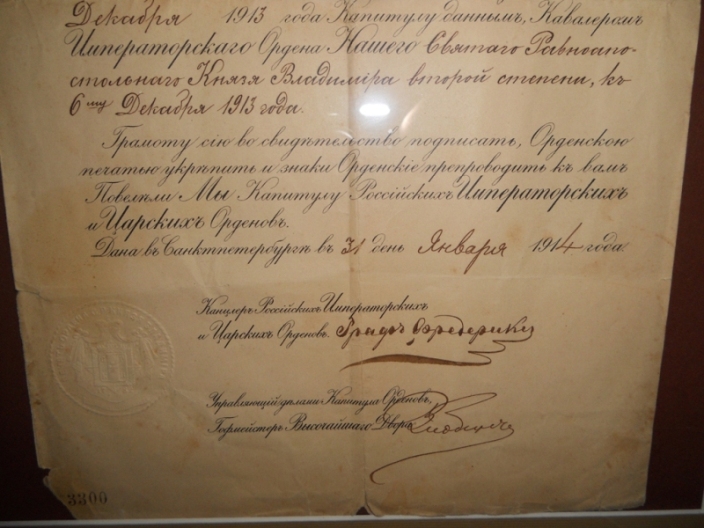 Декабря 1913 года Капитулу даннымъ, Кавалеромъ
Императорскаго Ордена Нашего Святаго Равноапо-
стольнаго Князя Владиміра второй степени, къ
6му Декабря 1913 года.
Грамоту сію во свидѣтельство подписать, Орденскою
печатью укрѣпить и знаки Орденскіе препроводить къ вамъ
Повелѣли Мы Капитулу Россійскихъ Императорскихъ
и Царскихъ Орденовъ.
Дана въ Санктпетербургѣ въ 31 день Января 1914 года
Канцлеръ Россійскихъ Императорскихъ
и Царскихъ Орденовъ. Графъ Фредерикъ
Управляющій дѣлами Капитула Орденовъ,
Гофмейстеръ Высочайшаго Двора
3300